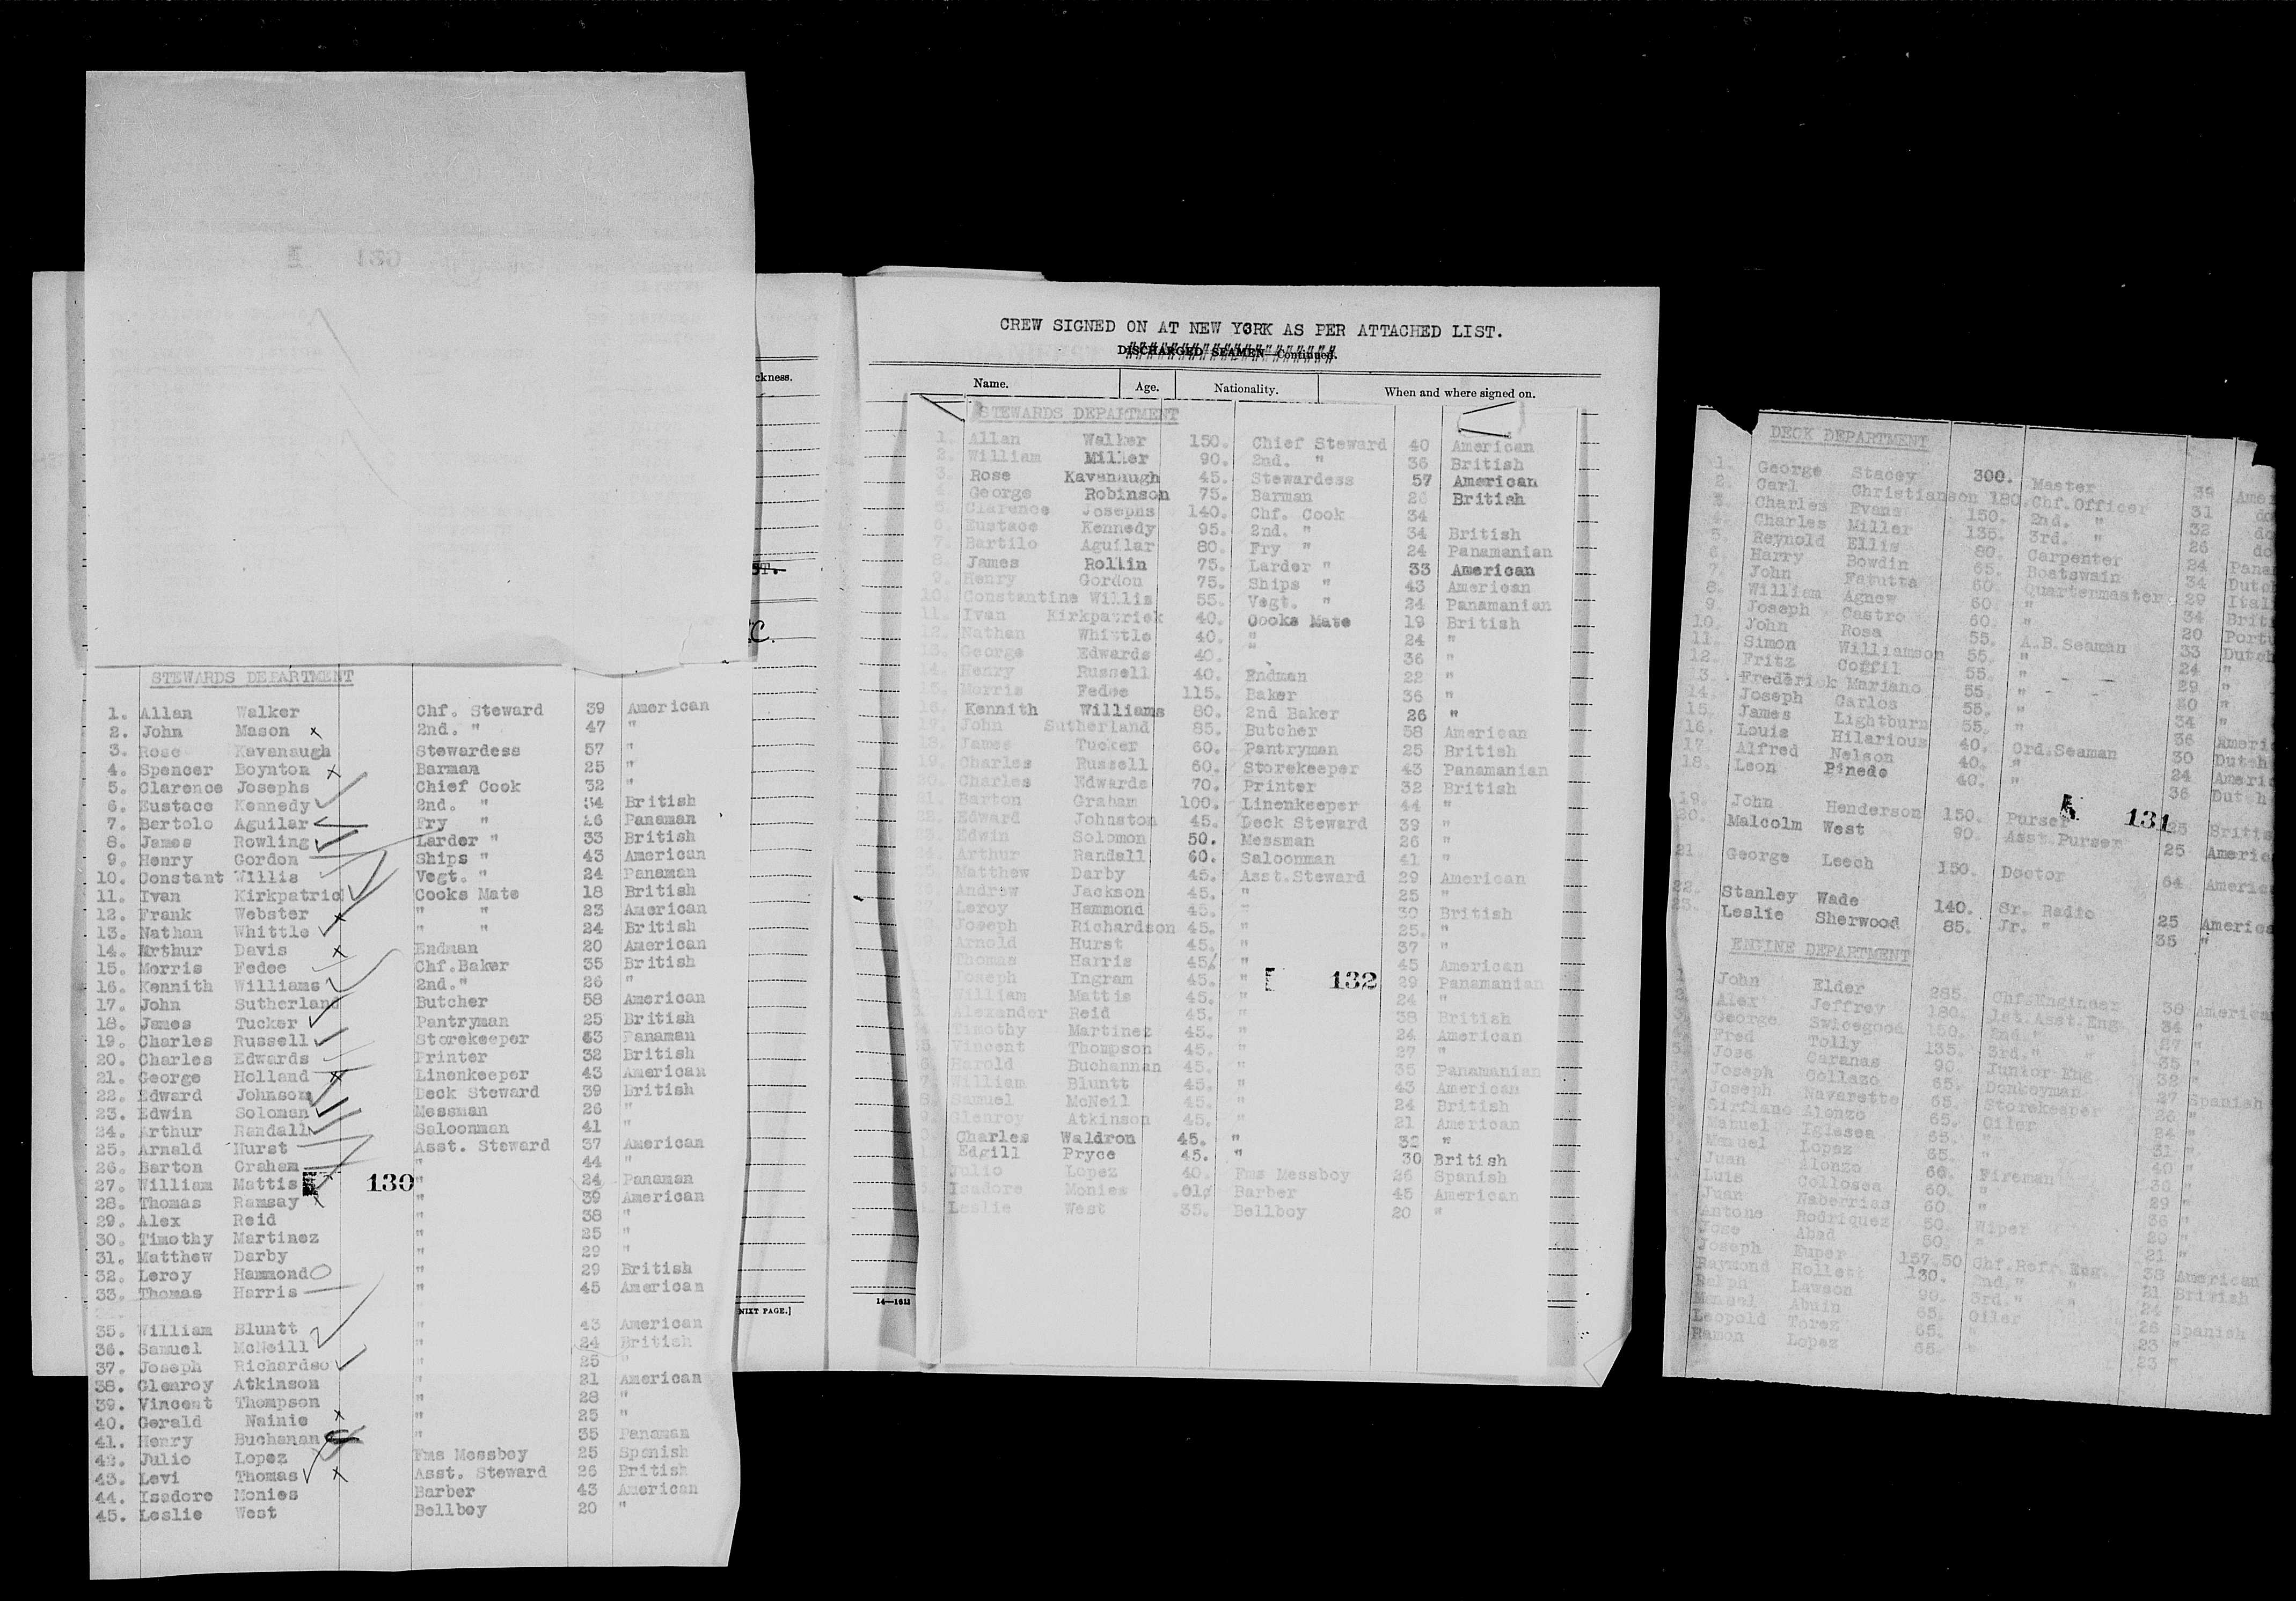 ckness.
ST.
C.
NEXT PAGE.]
STEWARDS DEPARTMENT
1. Allan Walker Chf. Steward 39 American
2. John Mason x 2nd. " 47 "
3. Rose Kavanaugh Stewardess 57 "
4. Spencer Boynton x Barman 25 "
5. Clarence Josephs Chief Cook 32 "
6. Eustace Kennedy 2nd. " 34 British
7. Bertolo Aguilar Fry " 26 Panaman
8. James Rowling Larder " 33 British
9. Henry Gordon Ships " 43 American
10. Constant Willis Vegt. " 24 Panaman
11. Ivan Kirkpatric Cooks Mate 18 British
12. Frank Webster x " " 23 American
13. Nathan Whittle " " 24 British
14. Arthur Davis x Endman 20 American
15. Morris Fedee Chf.Baker 35 British
16. Kennith Williams 2nd." 26 "
17. John Sutherland Butcher 58 American
18. James Tucker Pantryman 25 British
19. Charles Russell Storekeeper 63 Panaman
20. Charles Edwards Printer 32 British
21. George Holland x Linenkeeper 43 American
22. Edward Johnson Deck Steward 39 British
23. Edwin Solomon Messman 26 "
24. Arthur Randall Saloonman 41 "
25. Arnald Hurst Asst. Steward 37 American
26. Barton Graham " 44 "
27. William Mattis " 24 Panaman
130
28. Thomas Ramsay x " 39 American
29. Alex Reid " 38 "
30. Timothy Martinez " 25 "
31. Matthew Darby " 29 "
32. Leroy Hammond " 29 British
33. Thomas Harris " 45 American
35. William Bluntt " 43 American
36. Samuel McNeill " 24 British
37. Joseph Richardso " 25 "
38. Glenroy Atkinson " 21 American
39. Vincent Thompson " 28 "
40. Gerald Nainie x " 25 "
41. Henry Buchanan " 35 Panaman
42. Julio Lopez Fms Messboy 25 Spanish
43. Levi Thomas x Asst. Steward 26 British
44. Isadore Monies Barber 43 American
45. Leslie West Bellboy 20 "
CREW SIGNED ON AT NEW YORK AS PER ATTACHED LIST.
DISCHARGED SEAMEN—Continued.
Name. Age. Nationality. When and where signed on.
STEWARDS DEPARTMENT
1. Allan Walker 150. Chief Steward 40 American
2. William Miller 90. 2nd. " 36 British
3. Rose Kavanaugh 45. Stewardess 57 American
4. George Robinson 75. Barman 26 British
5. Clarence Josephs 140. Chf. Cook 34
6. Eustace Kennedy 95. 2nd. " 34 British
7. Bartilo Aguilar 80. Fry " 24 Panamanian
8. James Rollin 75. Larder " 33 American
9. Henry Gordon 75. Ships " 43 American
10. Constantine Willis 55. Vegt. " 24 Panamanian
11. Ivan Kirkpatrick 40. Cooks Mate 19 British
12. Nathan Whittle 40. " 24 "
13. George Edwards 40. " 36 "
14. Henry Russell 40. Endman 22 "
15. Morris Fedee 115. Baker 36 "
16. Kennith Williams 80. 2nd Baker 26 "
17. John Sutherland 85. Butcher 58 American
18. James Tucker 60. Pantryman 25 British
19. Charles Russell 60. Storekeeper 43 Panamanian
20. Charles Edwards 70. Printer 32 British
21. Barton Graham 100. Linenkeeper 44 "
22. Edward Johnston 45. Deck Steward 39 "
23. Edwin Solomon 50. Messman 26 "
24. Arthur Randall 60. Saloonman 41 "
Matthew Darby 45. Asst.Steward 29 American
Andrew Jackson 45. " 25 "
Leroy Hammond 45. " 30 British
Joseph Richardson 45. " 25. "
Arnold Hurst 45. " 37 "
Thomas Harris 45. " 45 American
Joseph Ingram 45. " 29 Panamanian
132
William Mattis 45. " 24 "
Alexander Reid 45. " 38 British
Timothy Martinez 45. " 24 American
Vincent Thompson 45. " 27 "
Harold Buchannan 45. " 35 Panamanian
William Bluntt 45. " 43 American
Samuel McNeil 45. " 24 British
Glenroy Atkinson 45. " 21 American
Charles Waldron 45. " 32 "
Edgill Pryce 45. " 30 British
Julio Lopez 40. Fms Messboy 26 Spanish
Isadore Monies .01 Barber 45 American
Leslie West 35. Bellboy 20 "
14—1613
DECK DEPARTMENT
1. George Stacey 300. Master 39 Amer
2. Carl Christianson 180. Chf.Officer 31 do
3. Charles Evans 150. 2nd. " 32 do
4. Charles Miller 135. 3rd. " 26 do
5. Reynold Ellis 80. Carpenter 24 Pana
6. Harry Bowdin 65. Boatswain 34 Dutch
7. John Fatutta 60. Quartermaster 29 Ital
8. William Agnew 60. " 34 Briti
9. Joseph Castro 60. " 20 Portu
10. John Rosa 55. A.B.Seaman 33 Dutch
11. Simon Williamson 55. " 24 "
12. Fritz Coffil 55. " 29 "
3. Frederick Mariano 55. " 30 "
14. Joseph Carlos 55. " 34 "
15. James Lightburn 55. " 36 Americ
16. Louis Hilarious 40. Ord.Seaman 30 Dutch
17. Alfred Nelson 40. " 24 Americ
18. Leon Pinedo 40. " 36 Dutch
131
19. John Henderson 150. Purser 25 Britis
20. Malcolm West 90. Asst.Purser 25 America
21. George Leech 150. Doctor 64 America
22. Stanley Wade 140. Sr. Radio 25 America
23. Leslie Sherwood 85. Jr. " 35 "
ENGINE DEPARTMENT
1. John Elder 285. Chf.Engineer 38 America
2. Alex Jeffrey 180. 1st.Asst.Eng. 34 "
3. George Swicegood 150. 2nd." " 27 "
4. Fred Tolly 135. 3rd." " 35 "
5. Jose Caranas 90. Junior Eng. 32 "
Joseph Collazo 65. Donkeyman 27 Spanish
Joseph Navarette 65. Storekeeper 26 "
Sirfiano Alonzo 65. Oiler 24 "
Manuel Iglesea 65. " 31 "
Manuel Lopez 65. " 40 "
Juan Alonzo 60. Fireman 36 "
Luis Collosea 60. " 29 "
Juan Naberrias 60. " 36 "
Antone Rodriquez 50. Wiper 20 "
Jose Abad 50. " 21 "
Joseph Euper 157.50 Chf.Refr.Eng. 38 American
Raymond Hollett 130. 2nd." " 21 British
Ralph Lawson 90. 3rd." " 24 "
Manuel Abuin 65. Oiler 26 Spanish
Leopold Torez 65. " 23 "
Ramon Lopez 65. " 23 "